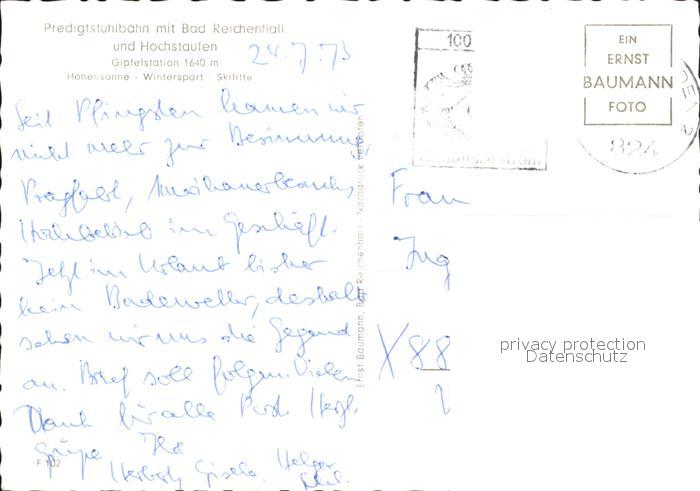 Predigtstuhlbahn mit Bad Reichenhall
und Hochstaufen
Gipfelstation 1640 m
Höhensonne - Wintersport - Skilifte
24.7.73
Seit Pfingsten kamen wir
nicht mehr zur Besinnung,
Pragfahrt, Amerikanerbesuch,
Hochbetrieb im Geschäft.
Jetzt im Urlaub bisher
kein Badewetter, deshalb
sehen wir uns die Gegend
an. Brief soll folgen. Vielen
Dank für alle Post. Herzl.
Grüße Ihre
Herbert, Gisela, Holger
F 102
Ernst Baumann, Bad Reichenhall - Nachdruck verboten
100
EIN
ERNST
BAUMANN
FOTO
824
Frau
Ing
X 88
privacy protection
Datenschutz